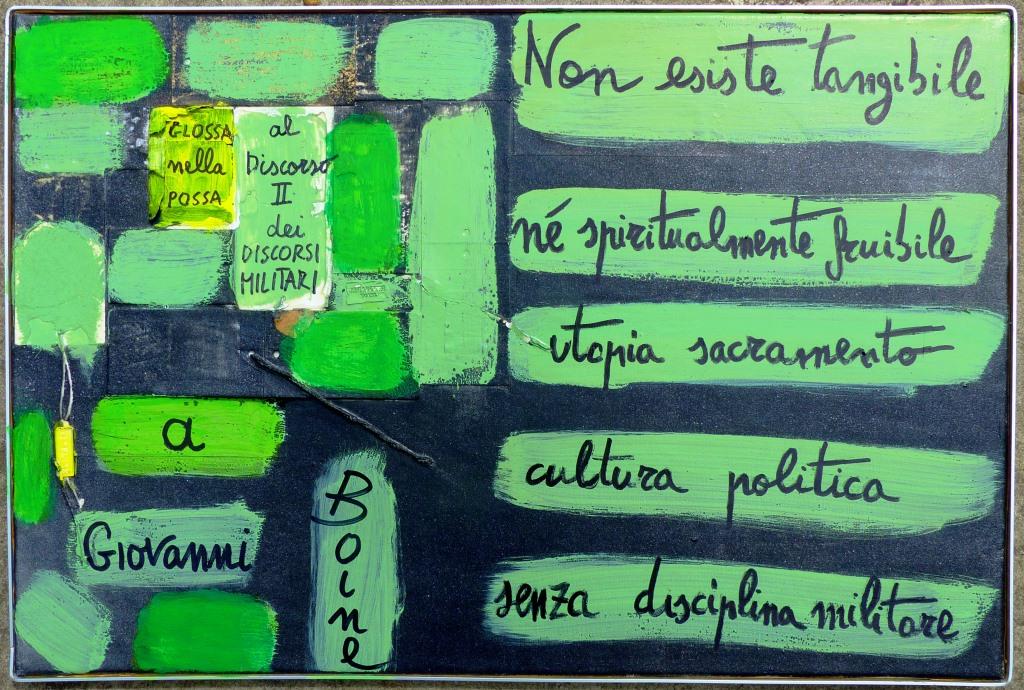 GLOSSA
nella
POSSA
al
Discorso
II
dei
DISCORSI
MILITARI
a
Giovanni
Boine
Non esiste tangibile
né spiritualmente fruibile
utopia sacramento
cultura politica
senza disciplina militare